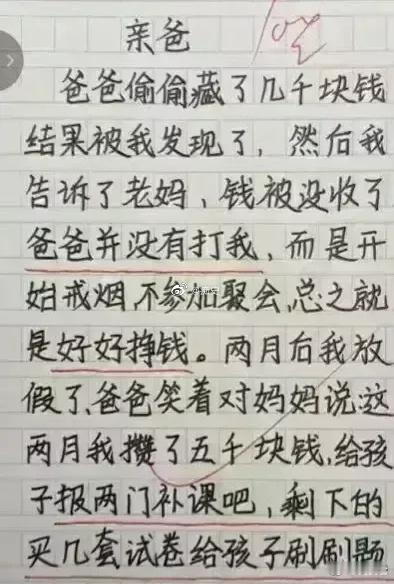 亲爸
爸爸偷偷藏了几千块钱
结果被我发现了，然后我
告诉了老妈，钱被没收了
爸爸并没有打我，而是开
始戒烟，不参加聚会，总之就
是好好挣钱。两月后我放
假了，爸爸笑着对妈妈说：这
两月我攒了五千块钱，给孩
子报两门补课吧，剩下的
买几套试卷给孩子刷刷题